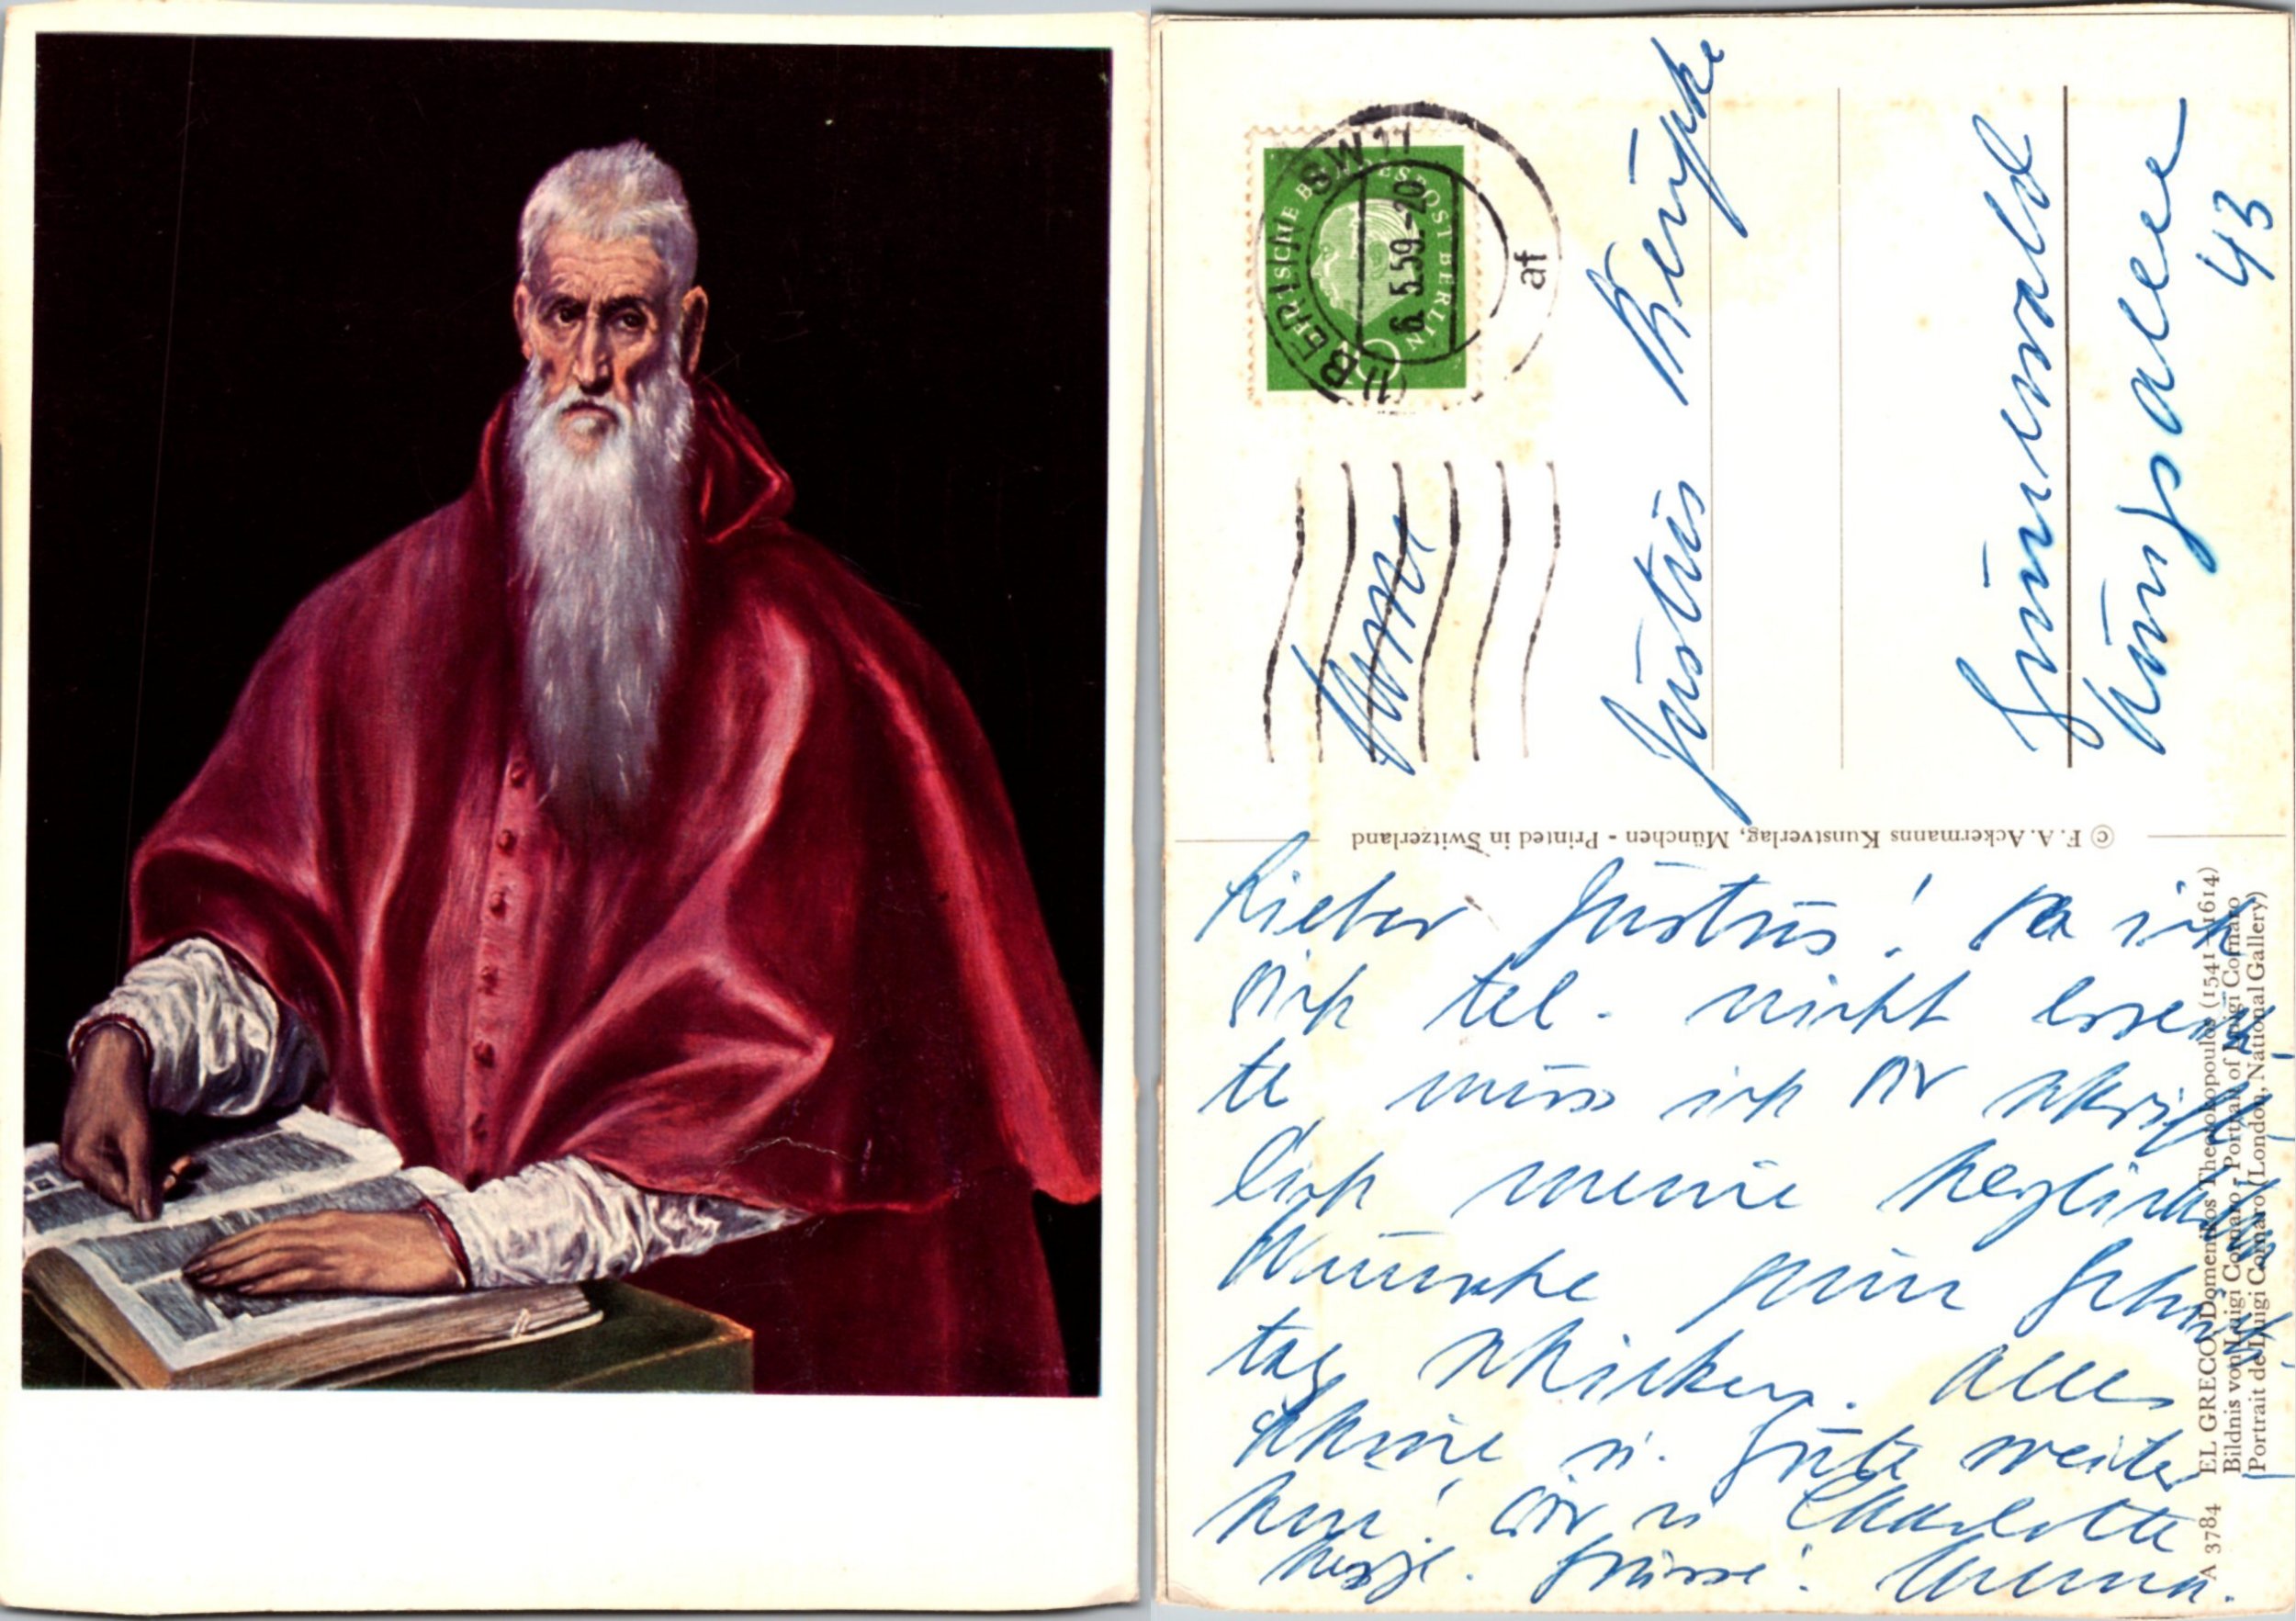 DEUTSCHE BUNDESPOST BERLIN
BERLIN SW 11
6.5.59.-20
af
Herrn
Justus
Grunewald
Königsallee
43
© F. A. Ackermanns Kunstverlag, München - Printed in Switzerland
Lieber Justus! Da ich
Dich tel. nicht erreich-
te muss ich Dir schrift-
lich meine herzlichsten
Wünsche zum Geburts-
tag schicken. Alles
Schöne u. Gute weiter-
hin! Dir u Charlotte
herzl. Grüsse!
A 3784 EL GRECO (Domenikos Theotokopoulos (1541-1614)
Bildnis von Luigi Cornaro - Portrait of Luigi Cornaro
Portrait de Luigi Cornaro (London, National Gallery)